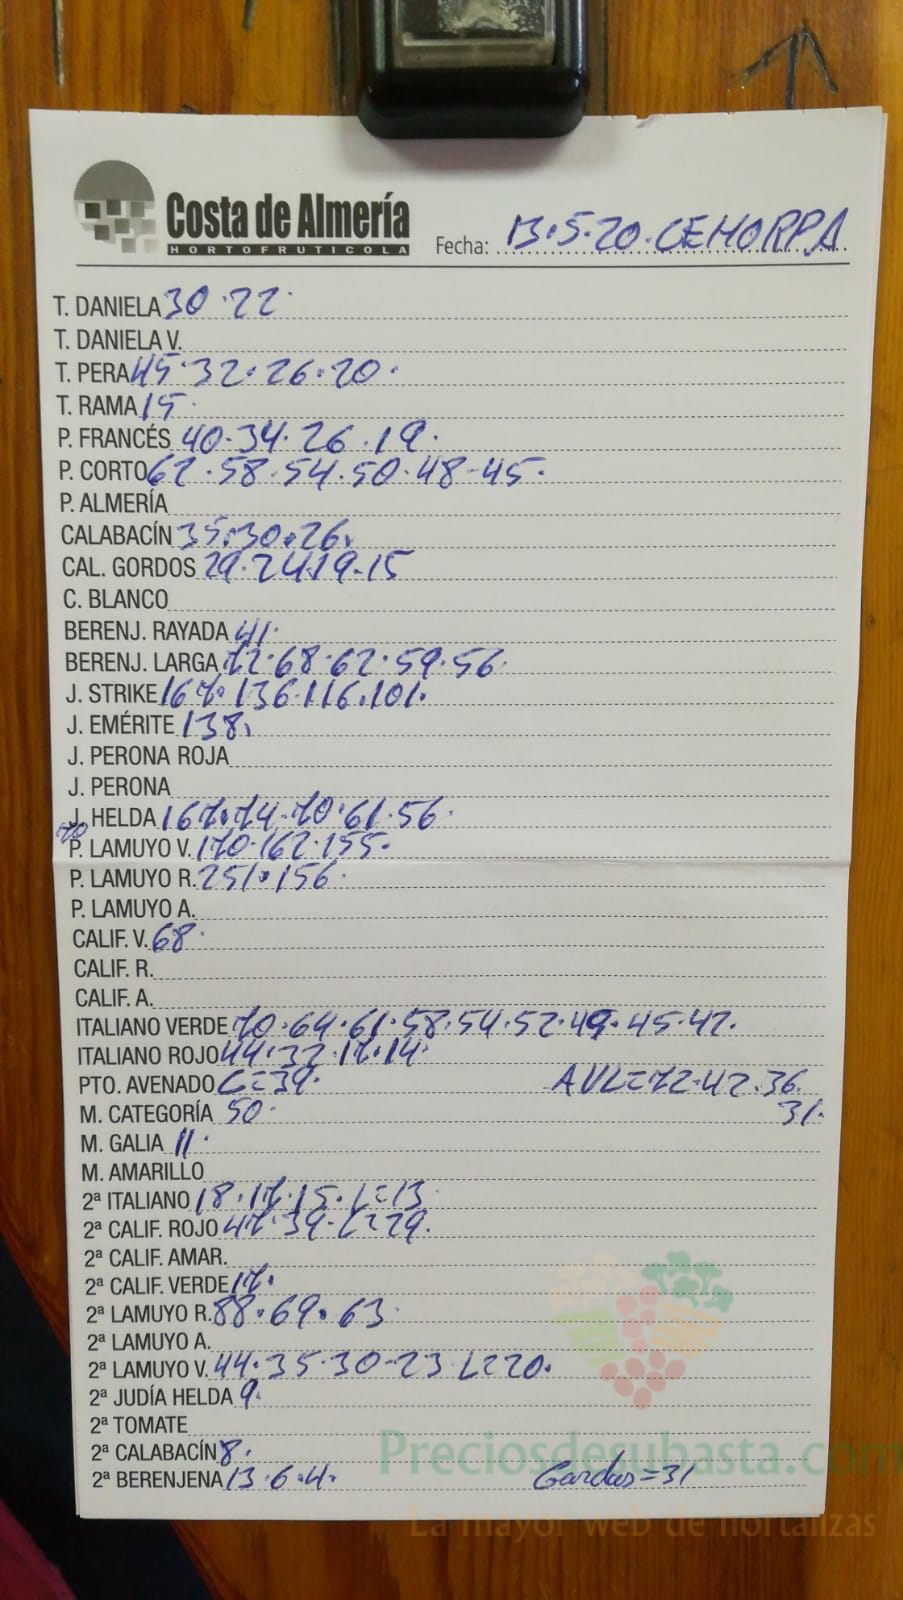 Costa de Almería
HORTOFRUTICOLA
Fecha: 13.5.20. CEHORPA
T. DANIELA 30.22.
T. DANIELA V.
T. PERA 45.32.26.20.
T. RAMA 15.
P. FRANCÉS 40.34.26.19.
P. CORTO 62.58.54.50.48-45.
P. ALMERÍA
CALABACÍN 35.30.26.
CAL. GORDOS 29.24.19-15
C. BLANCO
BERENJ. RAYADA 41.
BERENJ. LARGA 72.68.62.59.56.
J. STRIKE 167.136.116.101.
J. EMÉRITE 138.
J. PERONA ROJA
J. PERONA
J. HELDA 167.74.70.61.56.
70
P. LAMUYO V. 170.162.155.
P. LAMUYO R. 251.156.
P. LAMUYO A.
CALIF. V. 68.
CALIF. R.
CALIF. A.
ITALIANO VERDE 70.64.61.58.54.52.49.45.42.
ITALIANO ROJO 44.32.17.14.
PTO. AVENADO C=39. AVL=72.42.36.
M. CATEGORÍA 50. 31.
M. GALIA 11.
M. AMARILLO
2ª ITALIANO 18.17.15. L=13
2ª CALIF. ROJO 47.39. L=29.
2ª CALIF. AMAR.
2ª CALIF. VERDE 17.
2ª LAMUYO R. 88.69.63.
2ª LAMUYO A.
2ª LAMUYO V. 44.35.30-23 L=20.
2ª JUDÍA HELDA 9.
2ª TOMATE
2ª CALABACÍN 8.
2ª BERENJENA 13.6.4. Gordas=31
Preciosdesubasta.com
La mayor web de hortalizas